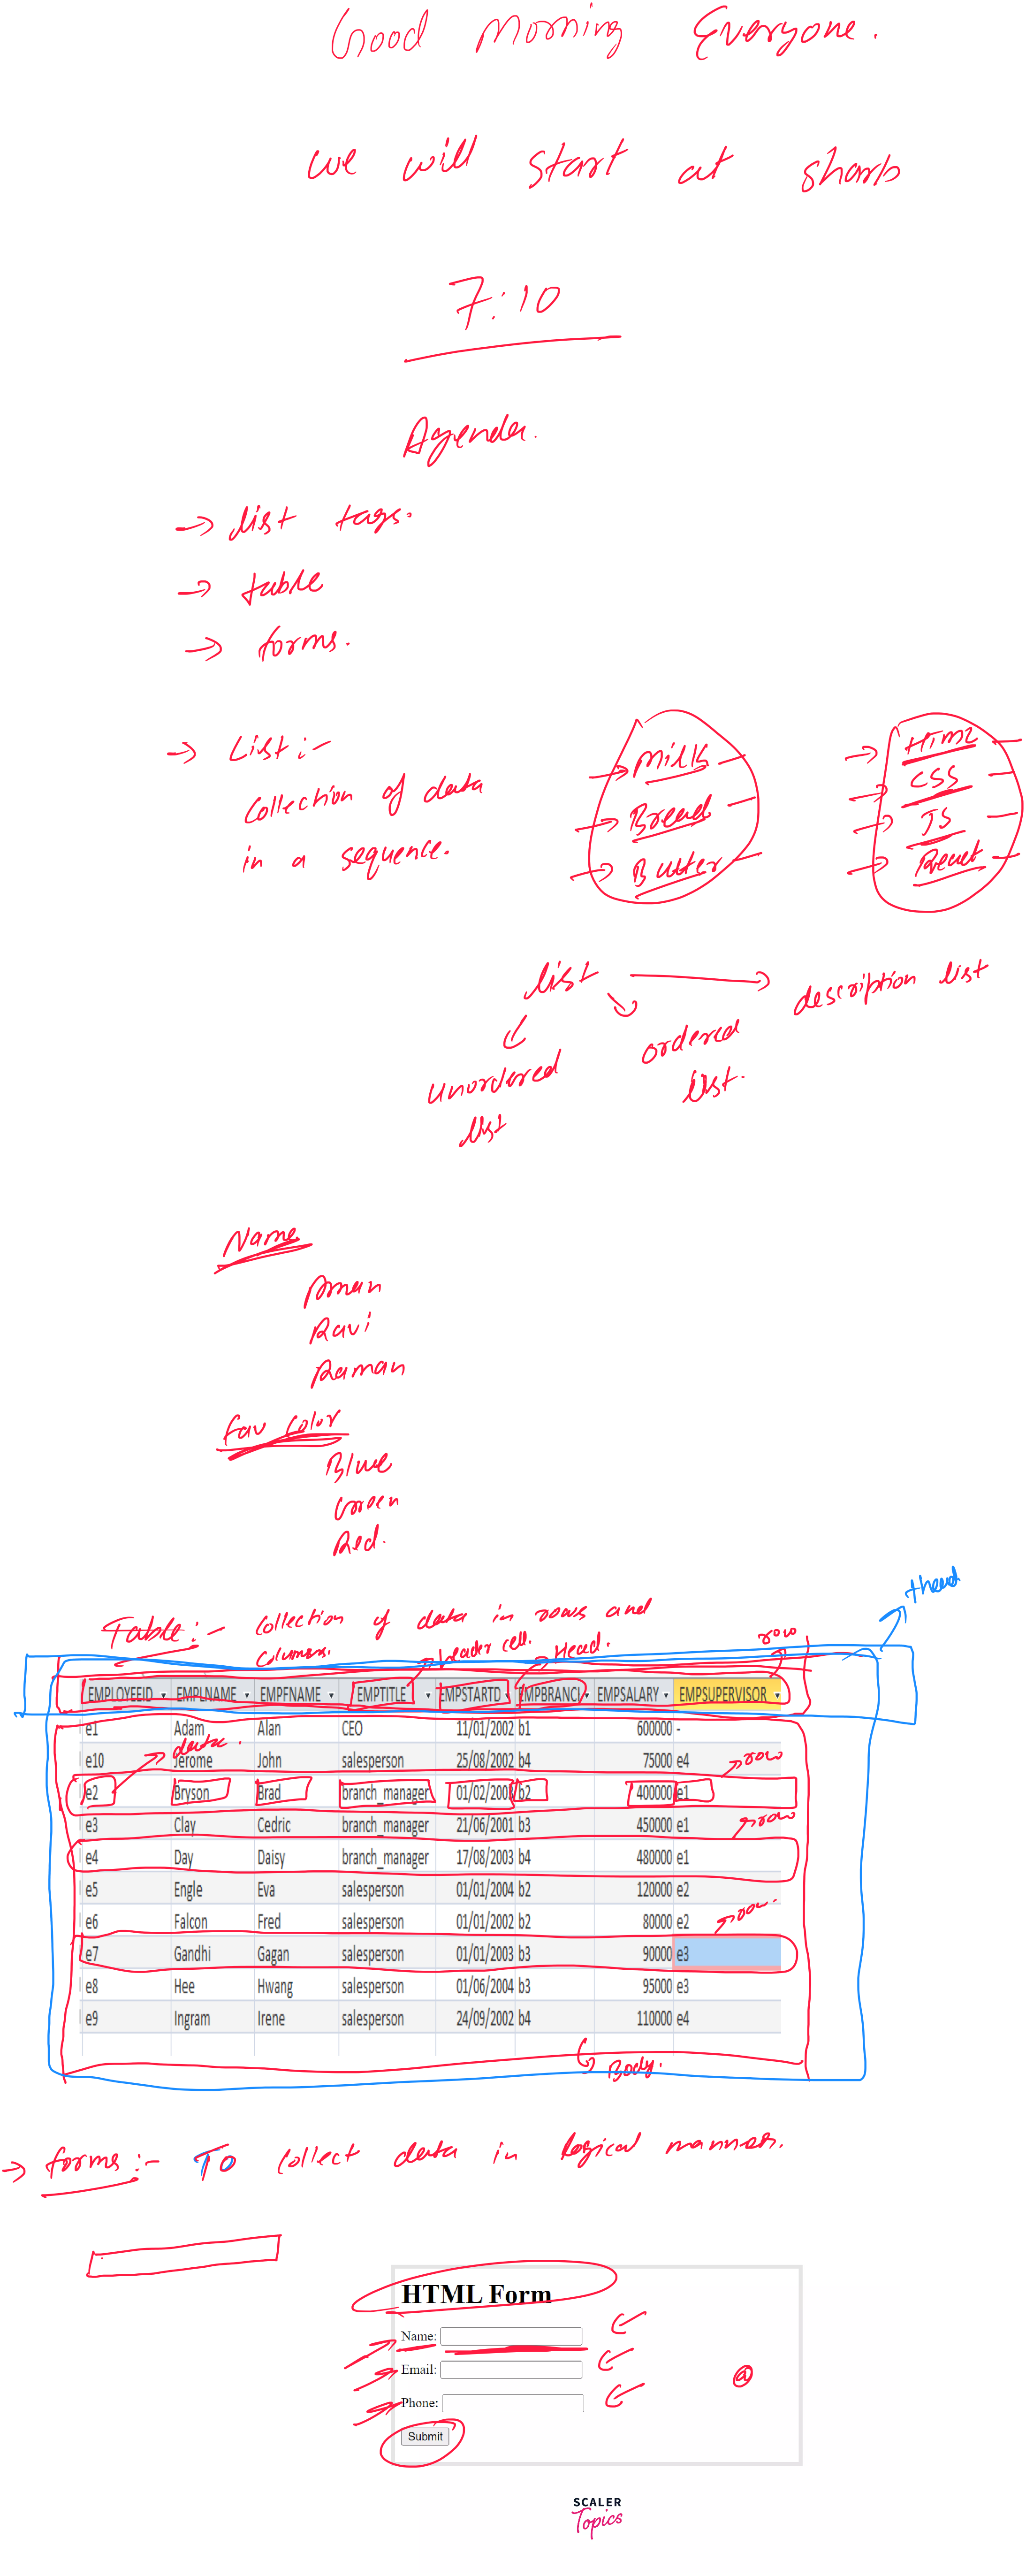 Good Morning Everyone.
we will start at sharp
7:10
Agenda.
→ list tags.
→ table
→ forms.
→ List :-
collection of data
in a sequence.
→ Milk
→ Bread
→ Butter
→ HTML
→ CSS
→ JS
→ React
list → description list
unordered
list
ordered
list.
Name
Aman
Ravi
Raman
Fav color
Blue
Green
Red.
thead
Table :- collection of data in rows and
columns.
→ header cell.
→ Head.
row
EMPLOYEEID EMPLNAME EMPFNAME EMPTITLE EMPSTARTD EMPBRANCH EMPSALARY EMPSUPERVISOR
e1 Adam Alan CEO 11/01/2002 b1 600000 -
→ data.
e10 Jerome John salesperson 25/08/2002 b4 75000 e4
→ row
e2 Bryson Brad branch_manager 01/02/2002 b2 400000 e1
e3 Clay Cedric branch_manager 21/06/2001 b3 450000 e1
→ row
e4 Day Daisy branch_manager 17/08/2003 b4 480000 e1
e5 Engle Eva salesperson 01/01/2004 b2 120000 e2
e6 Falcon Fred salesperson 01/01/2002 b2 80000 e2
→ row.
e7 Gandhi Gagan salesperson 01/01/2003 b3 90000 e3
e8 Hee Hwang salesperson 01/06/2004 b3 95000 e3
e9 Ingram Irene salesperson 24/09/2002 b4 110000 e4
Body.
→ forms :- To collect data in logical manner.
HTML Form
Name:
Email:
Phone:
@
Submit
SCALER
Topics